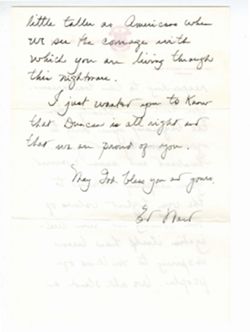 little taller as Americans when
we see the courage with
which you are living through
this nightmare.
I just wanted you to know
that Duncan is all right and
that we are proud of you.
May God bless you and yours,
Ed